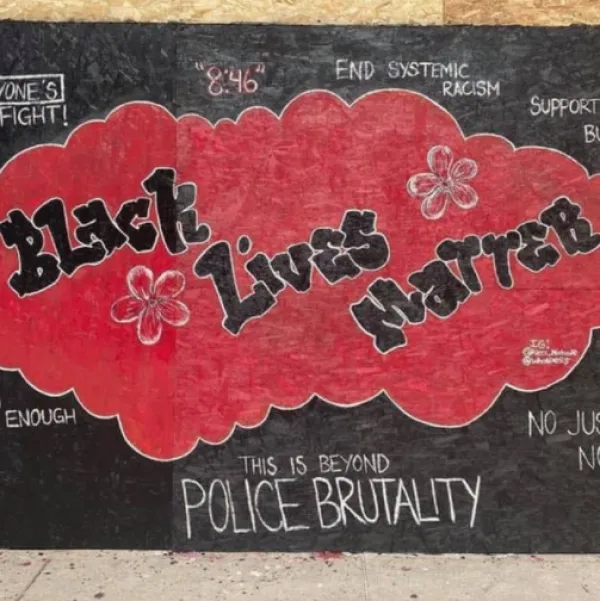 YONE'S
FIGHT!
"8:46"
END SYSTEMIC
RACISM
SUPPORT
BU
Black
Lives
Matter
IG:
ENOUGH
NO JUS
NO
THIS IS BEYOND
POLICE BRUTALITY